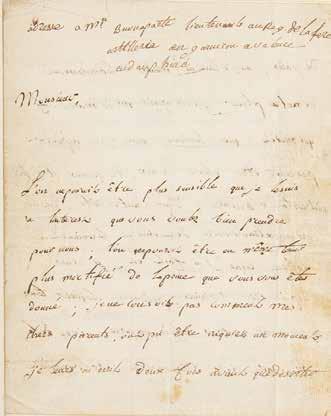 adresse a Mr Buonaparte lieutenant au Reg de la fere
artillerie en garnison a valence
en dauphiné
Monsieur,
L'on ne pouroit être plus sensible que je le suis
a l'interest que vous voulez bien prendre
pour nous; l'on ne pouroit être en même
plus mortifié de la peine que vous vous êtes
donné; je ne conçois pas comment mes
chers parents, ont pu être inquiets un moment
je leurs ecrit deux fois avant que de